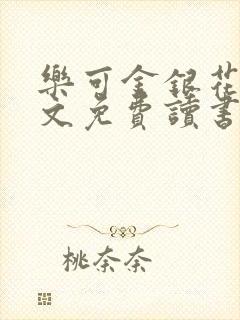 樂可金銀花
文免費讀書
桃奈奈